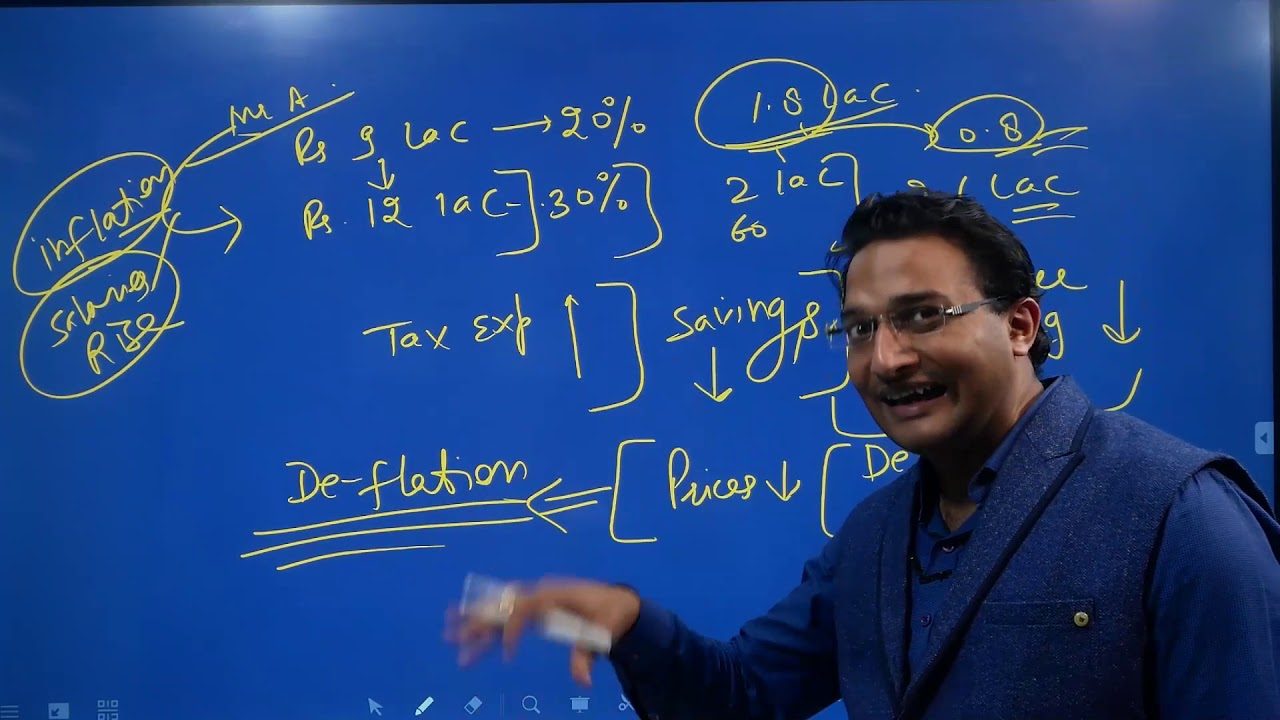 Mr A.
Rs 9 lac → 20%
1.8 lac.
0.8
inflation
Rs. 12 lac - 30%
2 lac
lac
60
Salaries
Rise
Tax Exp ↑
Savings ↓
↓
De-flation
Prices ↓
De